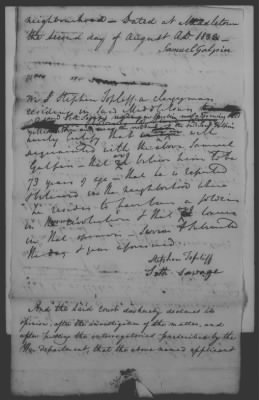 neighbourhood — Dated at Middletown
the second day of August AD. 1832 —
Samuel Galpin
We Stephen Topliff a clergyman
residing in said Middletown
and Seth Savage residing in
hereby certify that we are well
acquainted with the above Samuel
Galpin — that we believe him to be
73 years of age — that he is reputed
& believed in the neighborhood where
he resides to have been a soldier
in the revolution & that we concur
in that opinion — Sworn & subscribed
the day & year aforesaid.
Stephen Topliff
Seth Savage
And the said court do hereby declare its
opinion, after the investigation of the matter, and
after putting the interrogatories prescribed by the
War department, that the above named applicant